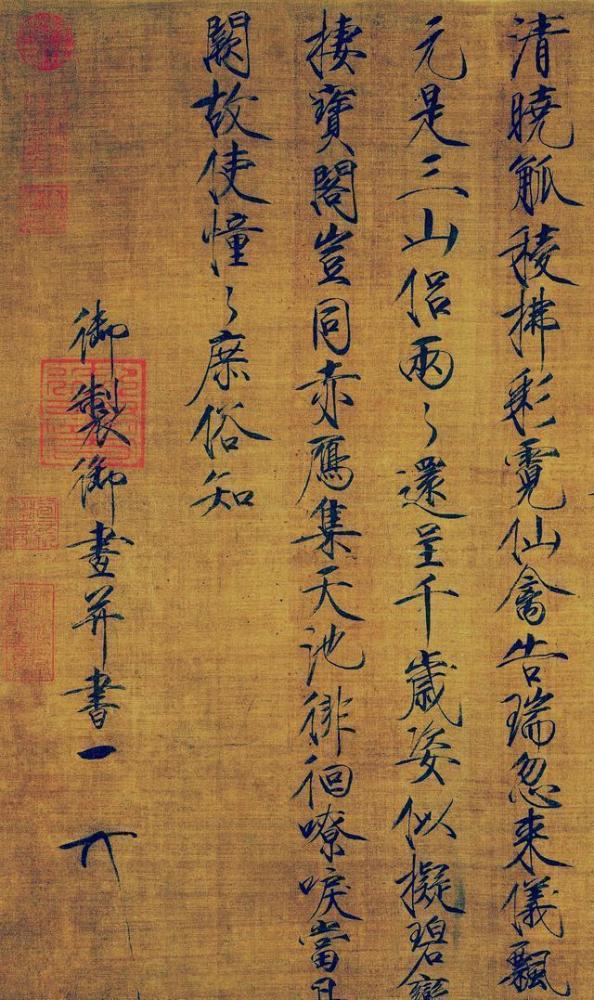 清曉觚稜拂彩霓仙禽告瑞忽来儀飄
元是三山侶兩〻還呈千歲姿似擬碧
棲寶閣豈同赤鴈集天池徘徊嘹唳當
闕故使憧〻庶俗知
御製御畫并書